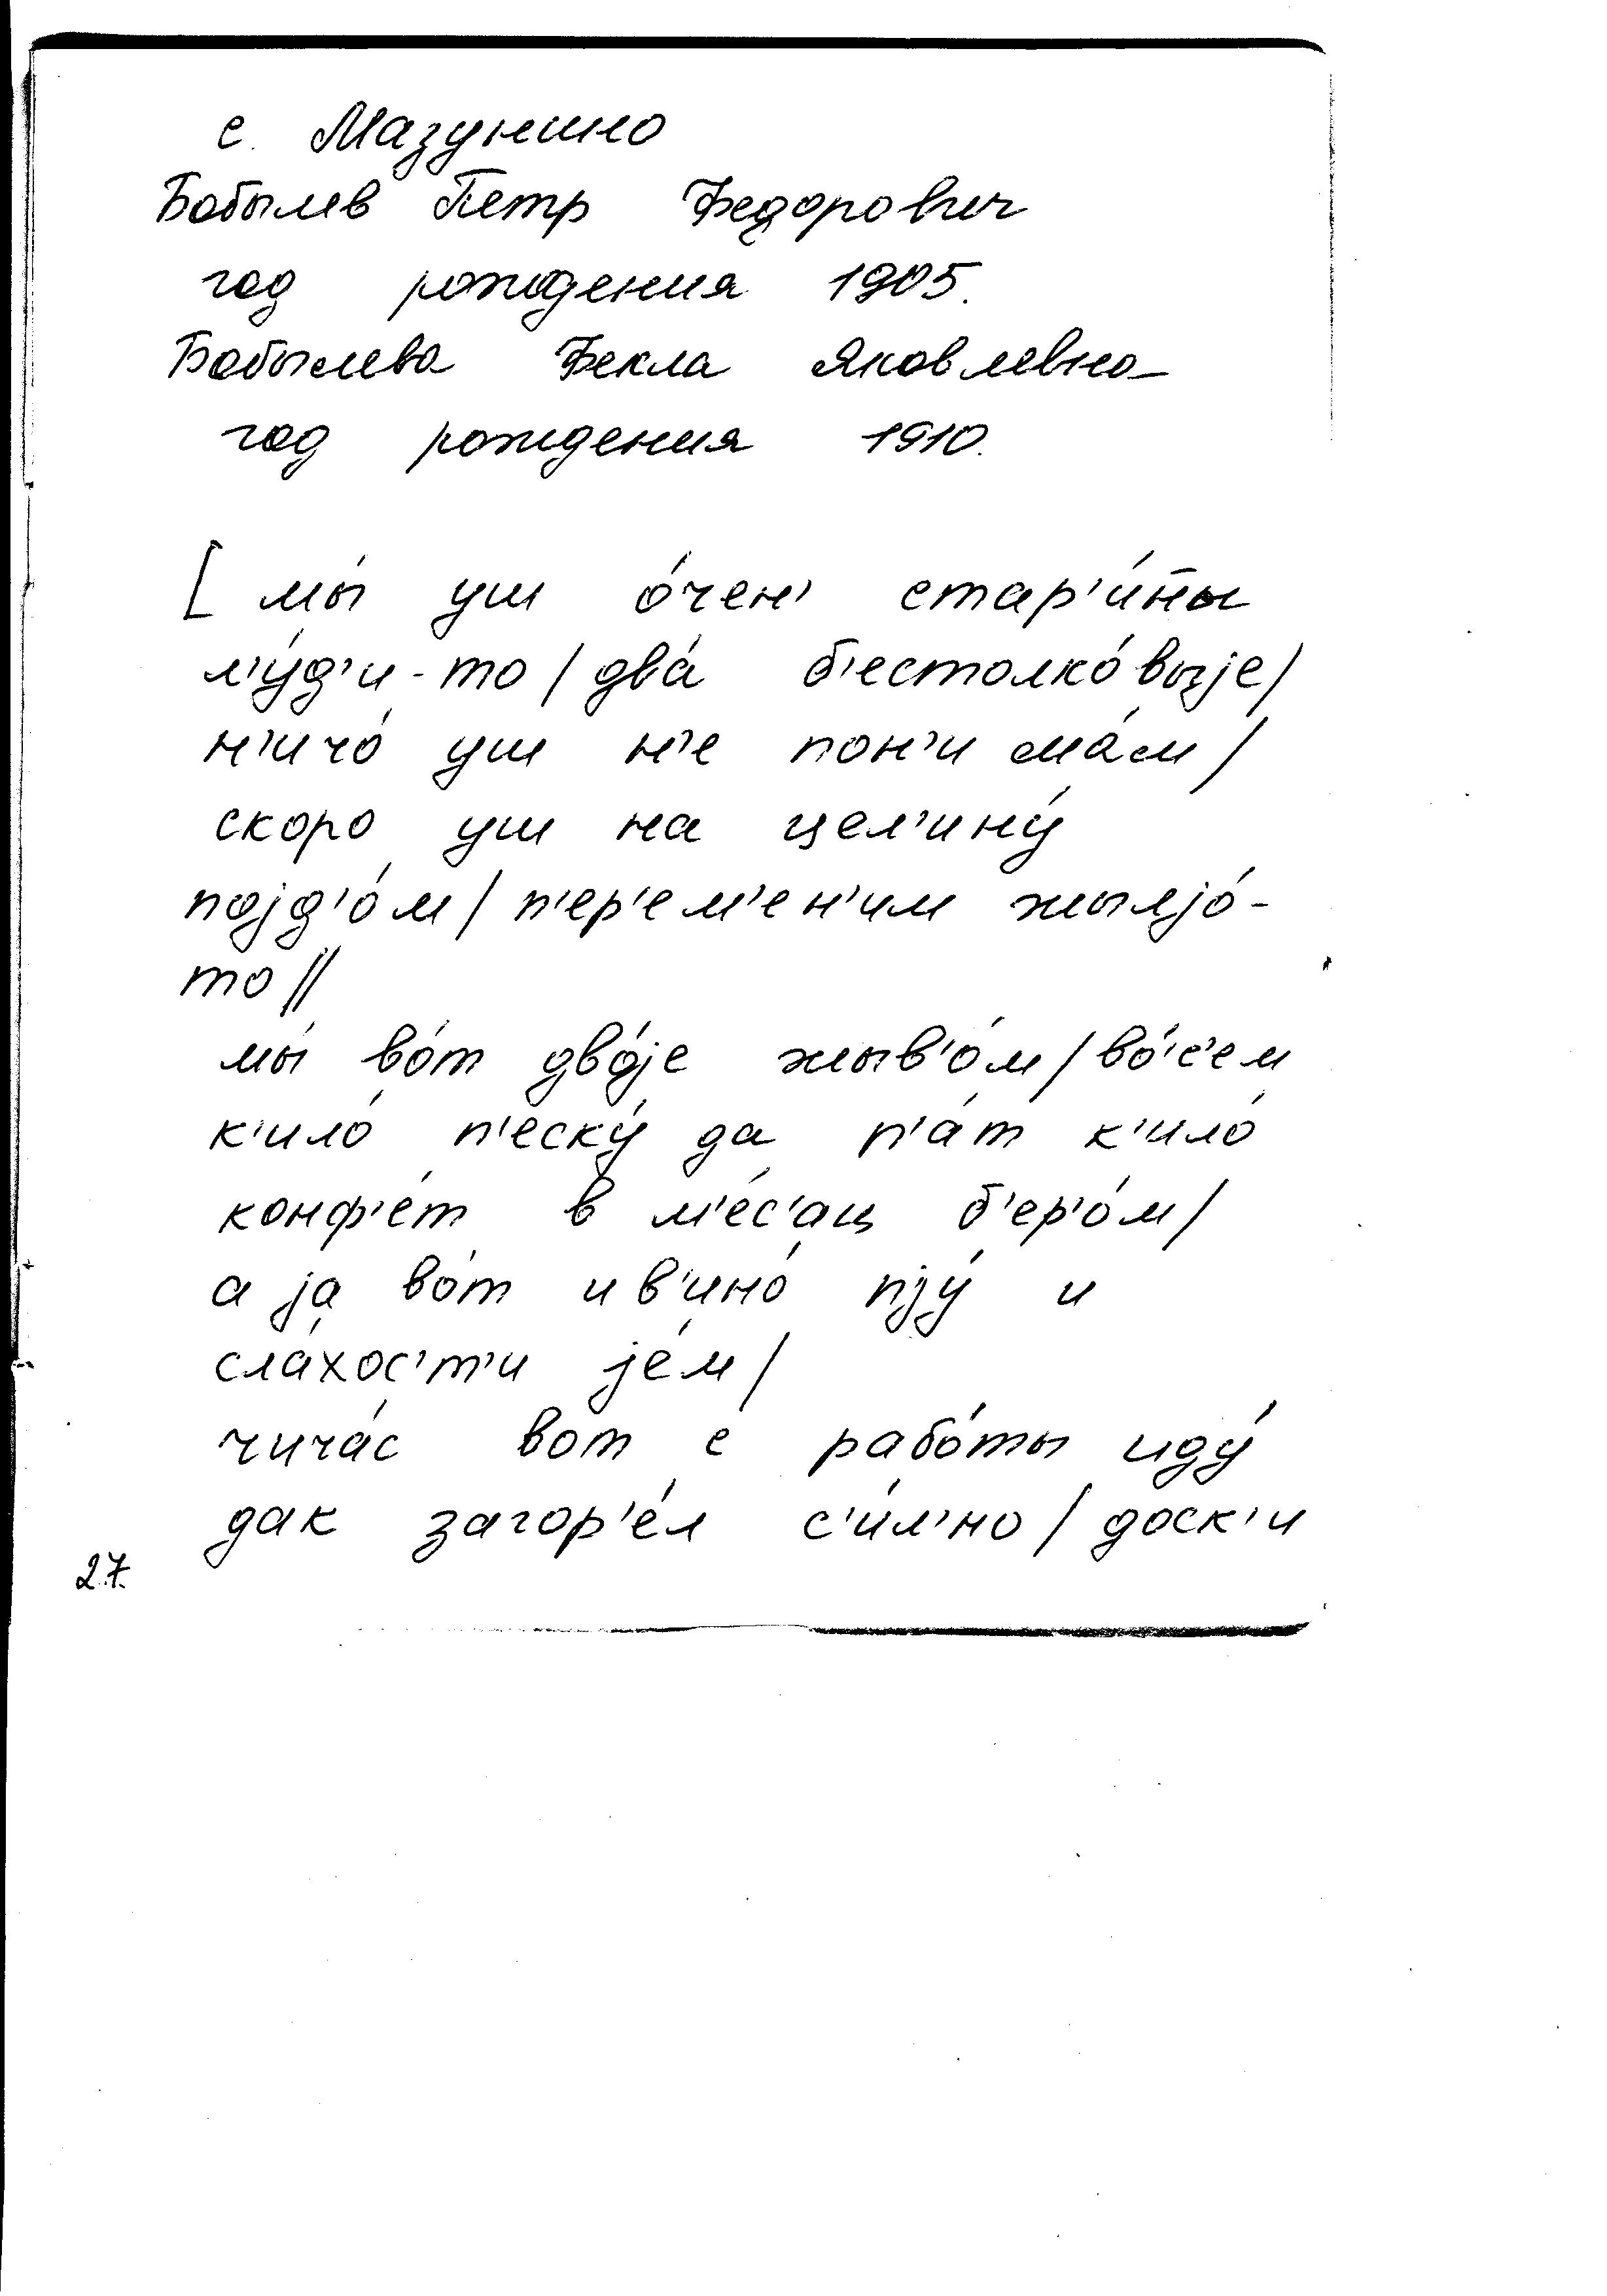 с. Мазунино
Бобылев Петр Федорович
год рождения 1905.
Бобылева Фекла Яковлевна
год рождения 1910.
[ мы́ уш о́чен' стар'и́н̄ы
л'у́д'и-то / два́ б'естолко́выjе /
н'ичо́ уш н'е пон'има́м /
скоро уш на цел'ину́
поjд'о́м / п'ер'ем'е́н'им жыљjо́-
то //
мы́ во́т дво́jе жыв'о́м / во́с'ем
к'ило́ п'еску́ да п'а́т к'ило́
конф'е́т в м'е́с'ац б'ер'о́м /
а jа во́т и в'ино́ пjу́ и
сла́хос'т'и jе́м /
чича́с вот с рабо́ты иду́
дак загор'е́л с'и́л'но / доск'и
27.